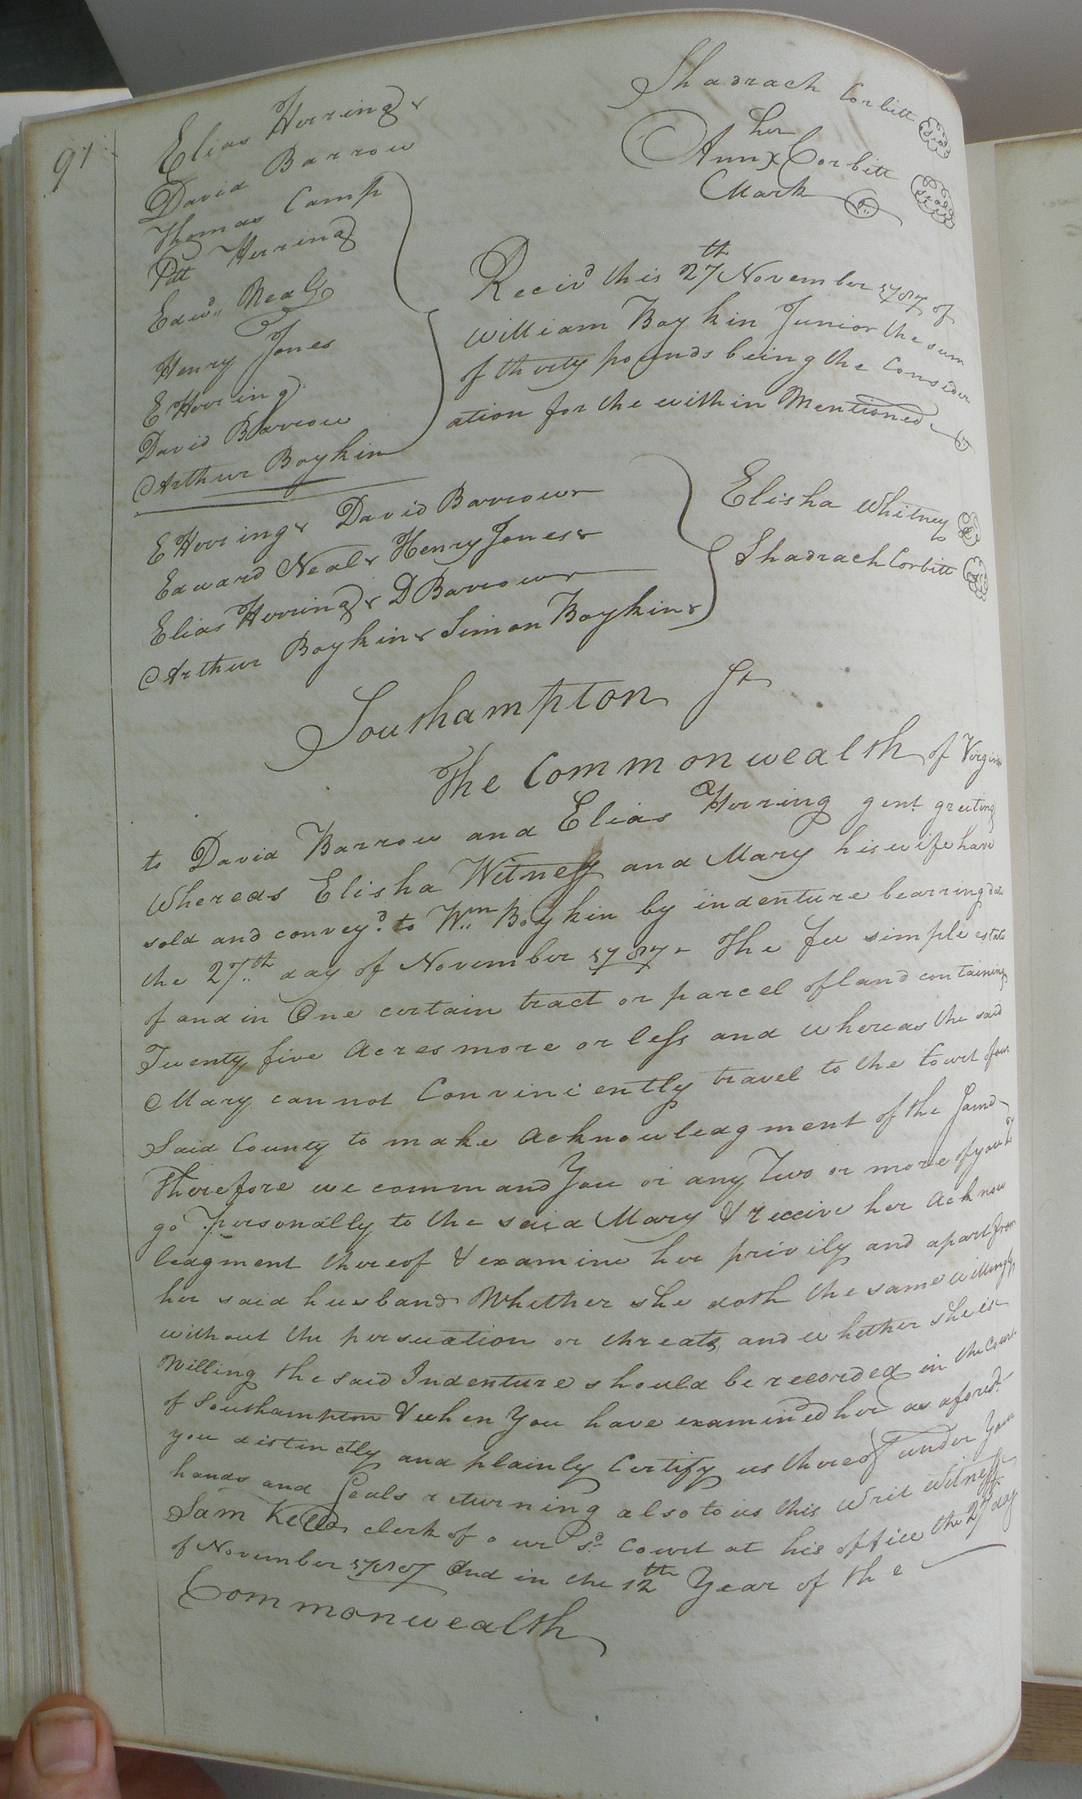 91
Shadrach Corbitt Seal
her
Ann X Corbitt Seal
Mark
Elias Herring &
David Barrow
Thomas Camp
Patt Herring
Edwd. Neal
Henry Jones
E Herring
David Barrow
Arthur Boykin
Recivd this 27th November 1787 of
William Boykin Junior the sum
of thirty pounds being the Consider
ation for the within Mentioned
Elisha Whitney
Shadrach Corbitt
E Herring & David Barrow &
Edward Neal & Henry Jones &
Elias Herring & D Barrow &
Arthur Boykin & Simon Boykin &
Southampton Sr
The Commonwealth of Virginia
to David Barrow and Elias Herring gent. greeting
Whereas Elisha Witney and Mary his wife have
sold and convey'd. to Wm. Boykin by indenture bearring date
the 27th. day of November 1787 - The fee simple estate
of and in One certain tract or parcel of land containing
Twenty five Acres more or less and whereas the said
Mary cannot Conviniently travel to the Court of our
Said County to make acknowledgment of the Same
Therefore we command You or any Two or more of you to
go personally to the said Mary & receive her acknow
ledgment thereof & examine her privily and apart from
her said husband Whether she doth the same willingly
without the persuation or threats and whether she is
Willing the said Indenture should be recorded in the Court
of Southampton & when You have examined her as aforesd.
you distinctly and plainly Certify us thereof under Your
hands and Seals returning also to us this Writ Witness
Sam Kello clerk of our Sd. Court at his office the 27 day
of November 1787 And in the 12th Year of the
Commonwealth